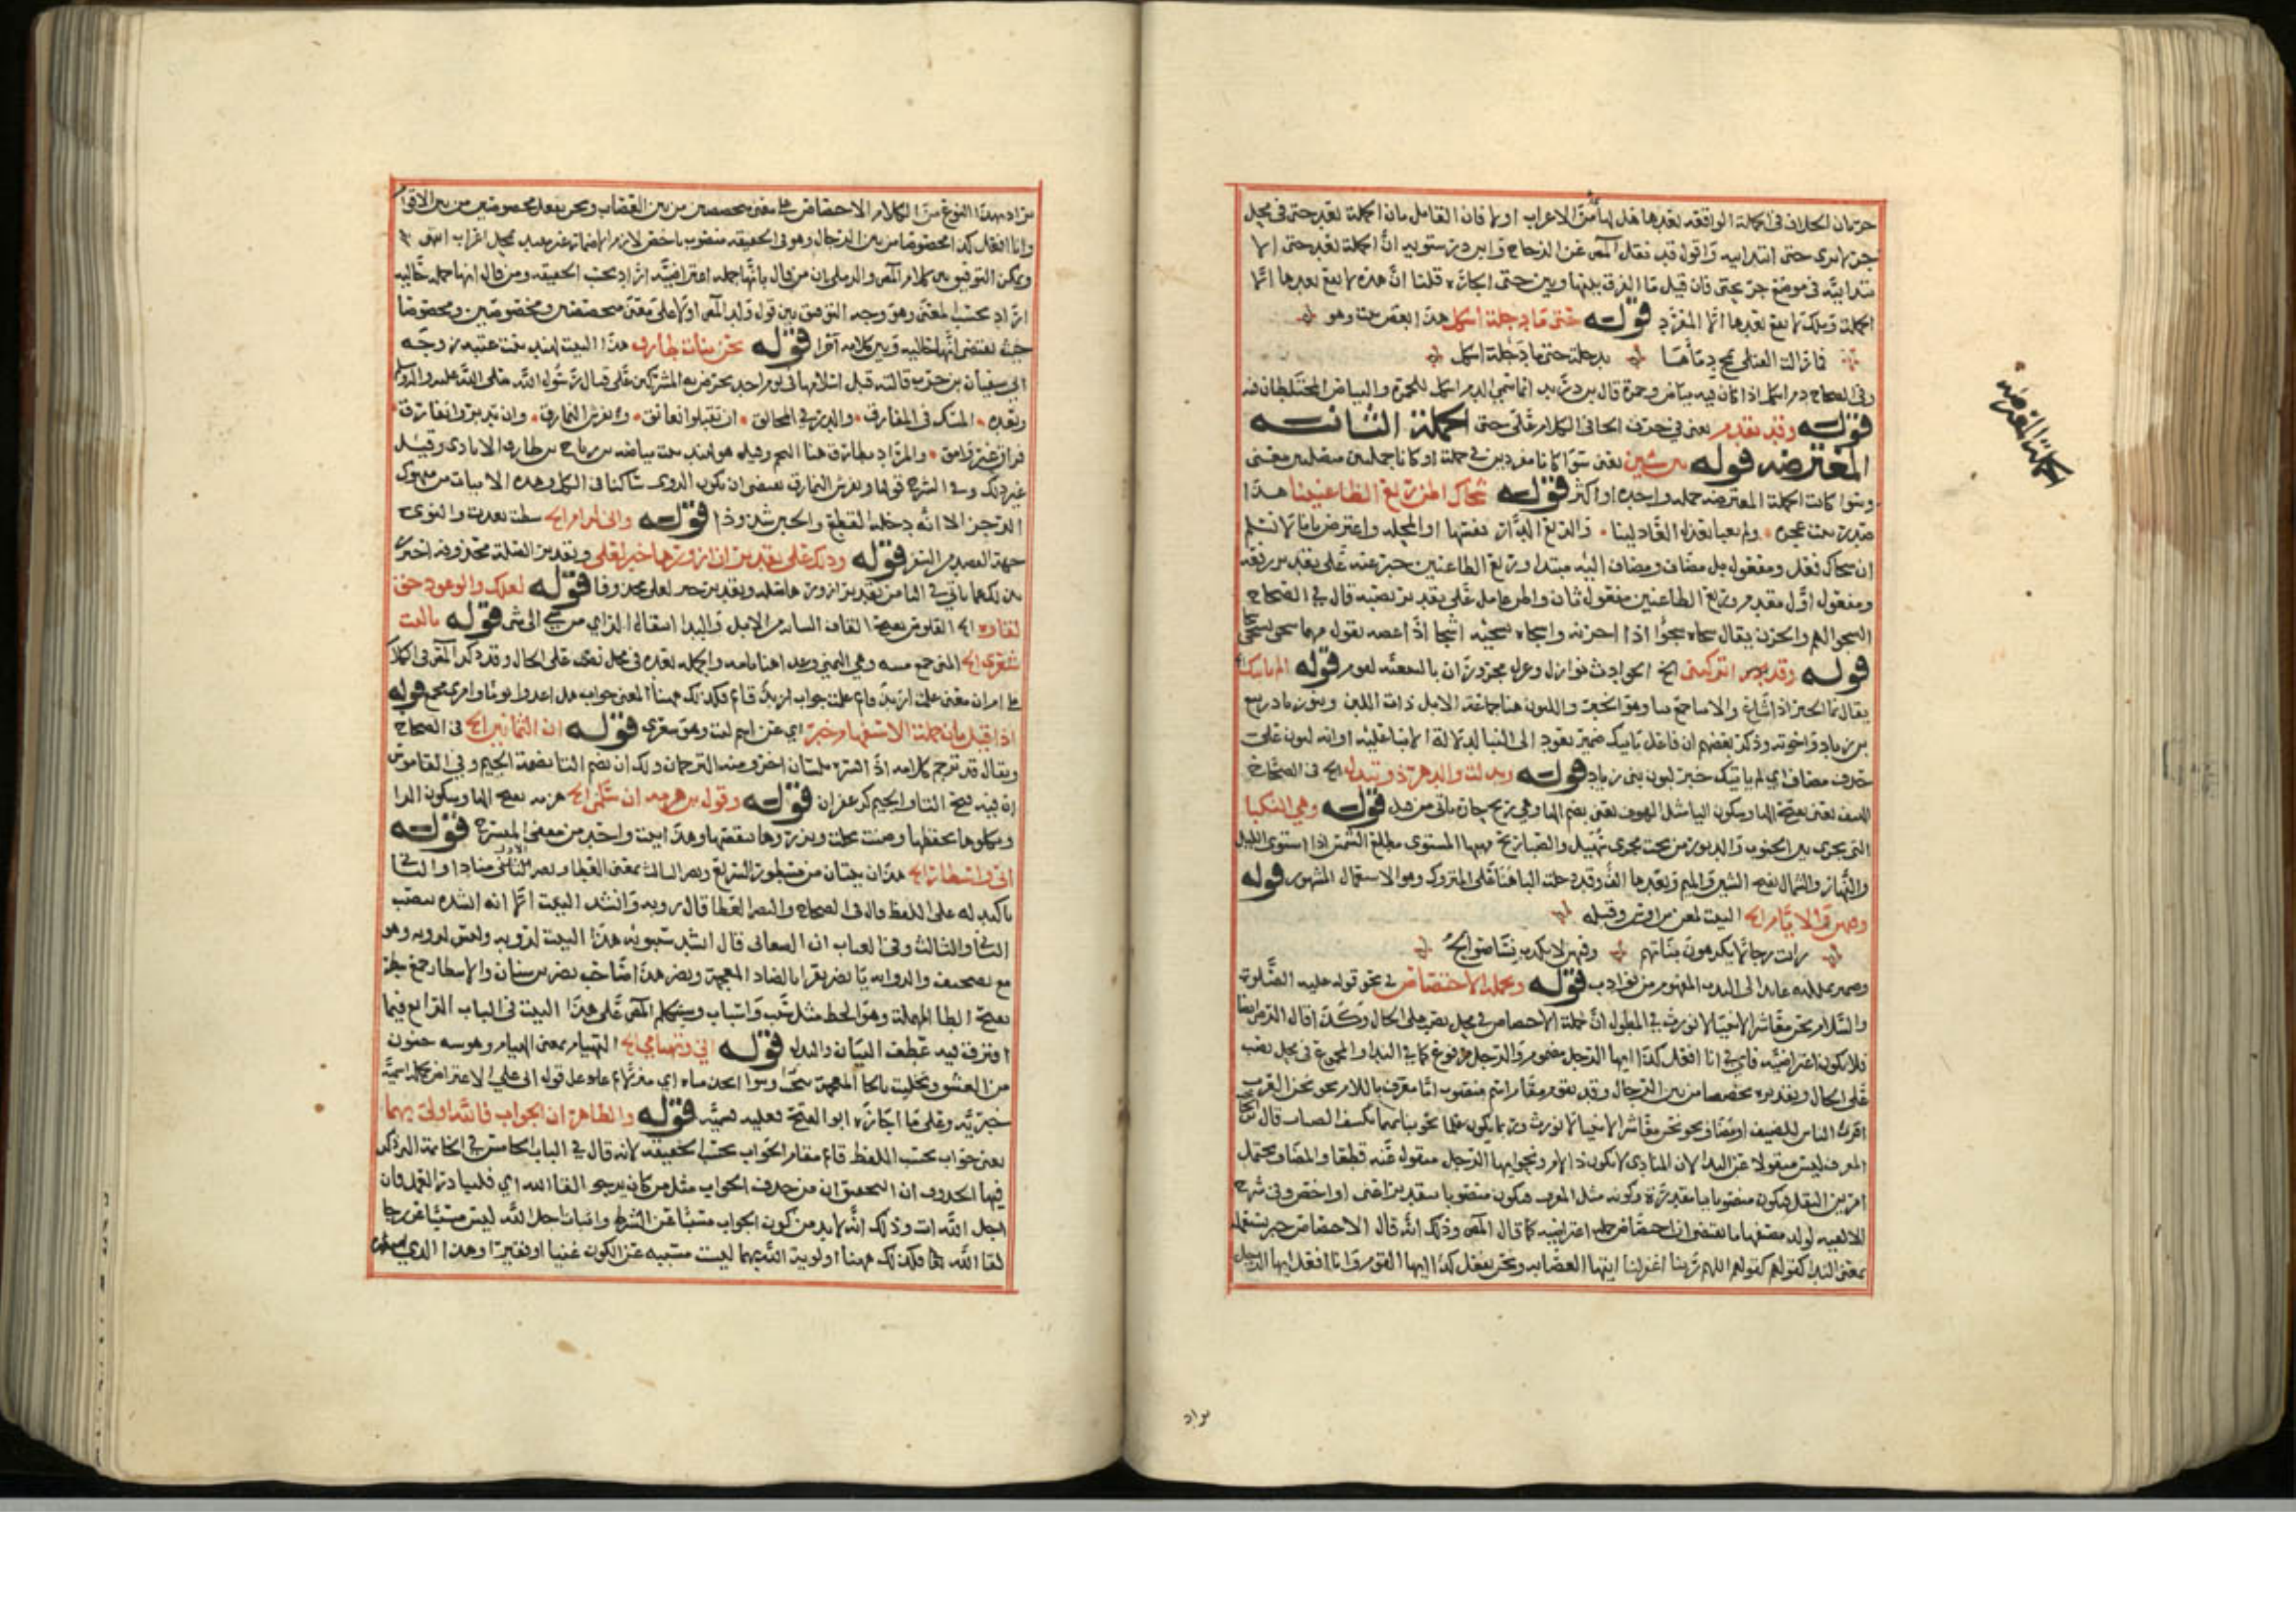 حتى ان الخلاف في الجملة الواقعة بعدها هل لها محل من الاعراب اولا فان القائل بان الجملة بعد حتى في محل
جر لا يرى حتى ابتدائية واقول قد نقل المص عن الزجاج وابن درستويه ان الجملة بعد حتى الا
بتدائية في موضع جر بحتى فان قيل ما الفرق بينها وبين حتى الجارة قلنا ان هذه لا يقع بعدها الا
الجملة وتلك لا يقع بعدها الا المفرد قوله حتى ما دجلة اشكل هذا بعض بيت وهو
فما زالت القتلى تمج دماءها بدجلة حتى ما دجلة اشكل
وفي الصحاح دم اشكل اذا كان فيه بياض وحمرة قال ابن دريد انما سمي الدم اشكل للحمرة والبياض المختلطان فيه
قوله وقد تقدم يعني في حرف الحا في الكلام على حتى الجملة الثانية
المعترضة قوله بين شيئين يعني سوا كانا مفردين في جملة او كانا جملتين متصلتين معنى
وسوا كانت الجملة المعترضة جملة واحدة او اكثر قوله شجاك اظن ربع الظاعنينا هذا
صدر بيت عجزه ولم تعبا بعذل العاذلينا والربع الدار نفسها او المحلة واعترض بانا لا نسلم
ان شجاك فعل ومفعول بل مضاف ومضاف اليه مبتدا وربع الظاعنين خبر عنه على تقدير رفعه
ومفعول اول مقدم وربع الظاعنين مفعول ثان واظن عامل على تقدير نصبه قال في الصحاح
الشجو الهم والحزن يقال شجاه شجوا اذا احزنه واشجاه يشجيه اشجا اذا اغصه تقول منهما شجي يشجى
قوله وقد ادركتني الخ الحوادث نوازل قوله الم ياتيك
يقال نما الخبر اذا شاع والانبا جمع نبا وهو الخبر واللبون هنا جماعة الابل ذات اللبن وبنو زياد ربيع
بن زياد واخوته وذكر بعضهم ان فاعل ياتيك ضمير يعود الى النبا لدلالة الانبا عليه او انه لبون على
حذف مضاف اي الم ياتيك خبر لبون بني زياد قوله وبدلت والدهر ذو تبدل الخ في الصحاح
الهيف يعني بفتح الها وسكون اليا مثل الهوف يعني بضم الها وهي ريح حارة تاتي من قبل قوله وهي النكبا
التي تجري بين الجنوب والدبور من تحت مجرى سهيل والصبا ريح مهبها المستوي مطلع الشمس اذا استوى الليل
والنهار والشمال بفتح الشين والميم وبعدها الف وقد دخلت البا هنا على المتروك وهو الاستعمال المشهور قوله
وفيهن والايام الخ البيت لمعن بن اوس وقبله
رايت رجالا يكرهون بناتهم وفيهن لا تكذب نسا صوالح
وضمير يمللنه عايد الى الندب المفهوم من نوادب قوله وبجملة الاختصاص في نحو قوله عليه الصلوة
والسلام نحن معاشر الانبيا لا نورث في المطول ان جملة الاختصاص في محل نصب على الحال وكذا قال الدمرايضا
فلا تكون اعتراضية فاي في انا افعل كذا ايها الرجل مضموم والرجل مرفوع كما في الندا والمجموع في محل نصب
على الحال وتقديره مخصصا من بين الرجال وقد يقوم مقام اي اسم منصوب اما معرف باللام نحو نحن العرب
اقرى الناس للضيف او مضاف نحو نحن معاشر الانبيا لا نورث وربما يكون علما نحو بنا تميما يكشف الضباب قال
المعرف ليس منقولا عن الندا لان المنادى لا يكون ذا لام ونحو ايها الرجل منقول عنه قطعا والمضاف يحتمل
امرين النقل فيكون منصوبا بيا مقدرة وكونه مثل المعرف فيكون منصوبا بتقدير اعني او اخص وفي شرح
الالفية لولد مصنفها ما يقتضي ان الاختصاص جملة اعتراضية كما قال المص وذلك انه قال الاختصاص خبر يستعمل
بمعنى الندا كقولهم كقولهم اللهم ربنا اغفر لنا ايتها العصابة ونحن نفعل كذا ايها القوم وانا افعل ايها الرجل
يراد
الجملة المعترضة
يراد بهذا النوع من الكلام الاختصاص على معنى مخصصين من بين العصاب ونحن نفعل مخصوصين من بين الاقوام
وانا افعل كذا مخصوصا من بين الرجال وهو في الحقيقة منصوب باخص لازم الاضمار غير محل اعراب انتهى
ويمكن التوفيق بين كلام المص والدملي ان من قال بانها جملة اعتراضية اراد بحسب الحقيقة ومن قال انها جملة حالية
اراد بحسب المعنى وهو وجه التوفيق بين قول ولد المص اولا على معنى مخصصين ومخصوصين ومخصوصا
حيث يقتضي انها حالية وبين كلامه آخرا قوله نحن بنات طارق هذا البيت لهند بنت عتبة زوجة
ابي سفيان بن حرب قالته قبل اسلامها في يوم احد تحرض به المشركين على قتال رسول الله صلى الله عليه وآله وسلم
وبعده المسك في المفارق والدر في المخانق ان تقبلوا نعانق ونفرش النمارق وان تدبروا نفارق
فراق غير وامق والمراد بطارق هنا النجم وقيل هو لهند بنت بياضة بن رباح بن طارق الايادي وقيل
غير ذلك وفي الشرح قولها ونفرش النمارق يقتضي ان يكون الروي ساكنا في الكل وهذه الابيات من منهوك
الرجز الا انه دخله القطع والخبن شذوذا قوله واني لرام الخ شطت بعدت والنوى
جهة القصد من السفر قوله وذلك على تقدير ان ازورها خبر لعلي وتقدير الصلة محذوفة اخترت
بقاؤه الخ القلوص بفتح القاف الشابة من الابل والبدا قوله لعلك والموعود حق
قوله يا ليت
شعري الخ المنى جمع منية وهي التمني والجملة بعده في محل نصب على الحال وقد ذكر المص في الكلا
على ام ان معنى علمت ازيد قائم علمت جواب ازيد قائم فكذلك ههنا المعنى جواب هل اغدون يوما وامري مجمع قوله
اذا قيل بان جملة الاستفهام خبر اي عن اسم ليت وهو شعري قوله ان الثمانين الخ في الصحاح
ويقال قد ترجم كلامه اذا فسره بلسان آخر ومنه الترجمان ولك ان تضم التا لضمة الجيم وفي القاموس
ان فيه فتح التا والجيم كزعفران قوله وقول ابن هرمة ان سليمى الخ هرمة بفتح الها وسكون الرا
ويكلؤها يحفظها وضنت بخلت ويرزوها ينقصها وهذا البيت واحد من معنى المنسرح قوله
اني واسطار الخ هذان بيتان من مشطور السريع ونصر الثالث بمعنى العطا ونصر الاول منادى والثاني
تاكيد له على اللفظ وقال في الصحاح والنصر العطا قال رؤبة وانشد البيت الا انه انشده بنصب
الثاني والثالث وفي العباب ان الصغاني قال انشد سيبويه هذا البيت لرؤبة وليس لرؤبة وهو
مع تصحيف والرواية يا نضر نضرا بالضاد المعجمة ونضر هذا صاحب نصر بن سيار والاسطار جمع سطر
بفتح الطا المهملة وهو الخط مثل سبب واسباب وسيتكلم المص على هذا البيت في الباب الرابع فيما
افترق فيه عطف البيان والبدل قوله اني وتهيامي الخ التهيام بمعنى الهيام وهو شبه جنون
من العشق وتخليت بالخا المعجمة
خبرية وعلى ما اجازه ابو الفتح قوله والظاهر ان الجواب فالله اولى بهما
يعني جواب بحسب اللفظ قائم مقام الجواب بحسب الحقيقة لانه قال في الباب الخامس في الخاتمة التي ذكر
فيها الحذف ان التحقيق ان من حذف الجواب مثل من كان يرجو لقا الله اي فليبادر العمل فان
اجل الله آت وذلك انه لا بد من كون الجواب مسببا عن الشرط واتيان اجل الله ليس مسببا عن رجا
لقا الله فكذلك ههنا اولوية الله بهما ليست مسببة عن الكون غنيا او فقيرا وهذا الذي